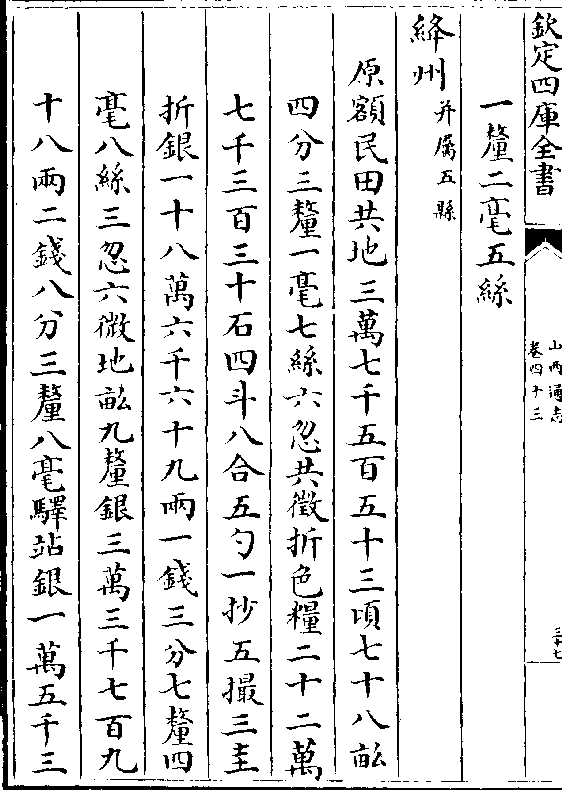 欽定四庫全書
山西通志
卷四十三
三十七
一釐二毫五絲
絳州并属五縣
原額民田共地三萬七千五百五十三頃七十八畝
四分三釐一毫七絲六忽共徵折色糧二十二萬
七千三百三十石四斗八合五勺一抄五撮三圭
折銀一十八萬六千六十九兩一錢三分七釐四
毫八絲三忽六微地畝九釐銀三萬三千七百九
十八兩二錢八分三釐八毫驛站銀一萬五千三